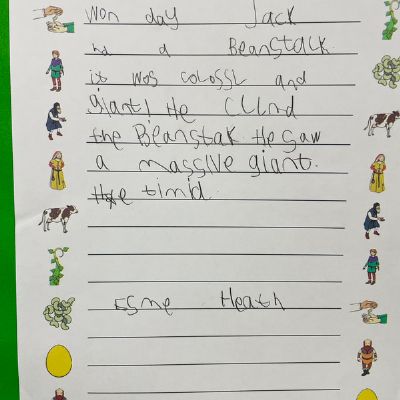 Won day Jack
ha a Beanstalk.
it wos colossl and
giant! He CLImd
the Beanstak He saw
a massive giant.
He timid.
Esme Heath